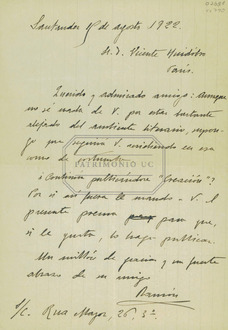 Santander 1º de agosto 1922.
Sr. D. Vicente Huidobro
París.
Querido y admirado amigo: Aunque
no sé nada de V. por estar bastante
alejado del ambiente literario, supon-
go que seguirá V. residiendo en esa
como de costumbre.
¿Continúa publicándose "Creación"?
Por si así fuera le mando a V. el
presente poema para que,
si le gusta, lo haga publicar.
Un millón de gracias y un fuerte
abrazo de su amigo
S/c. Rua Mayor, 26, 3º
PATRIMONIO UC